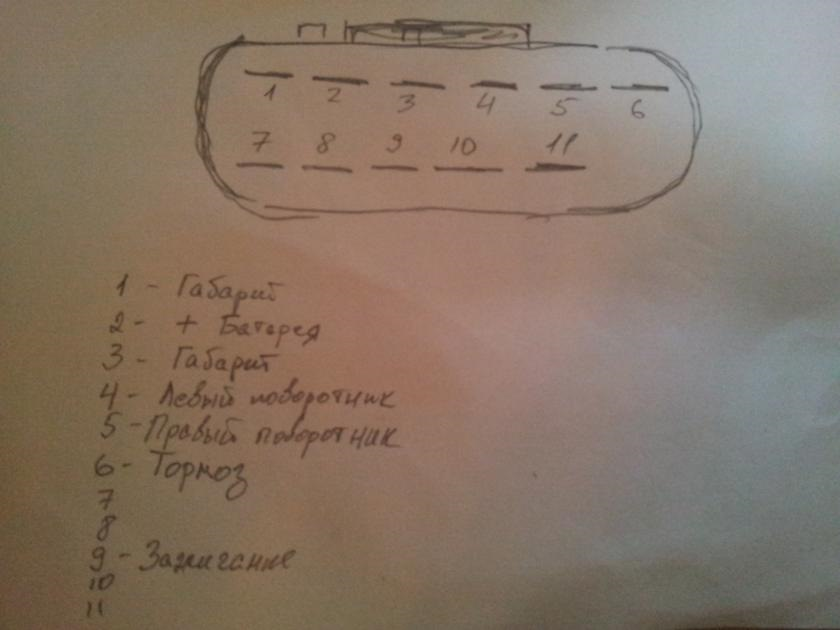 1 2 3 4 5 6
7 8 9 10 11
1 - Габарит
2 - + Батерея
3 - Габарит
4 - Левый поворотник
5 - Правый поворотник
6 - Тормоз
7
8
9 - Зажигание
10
11